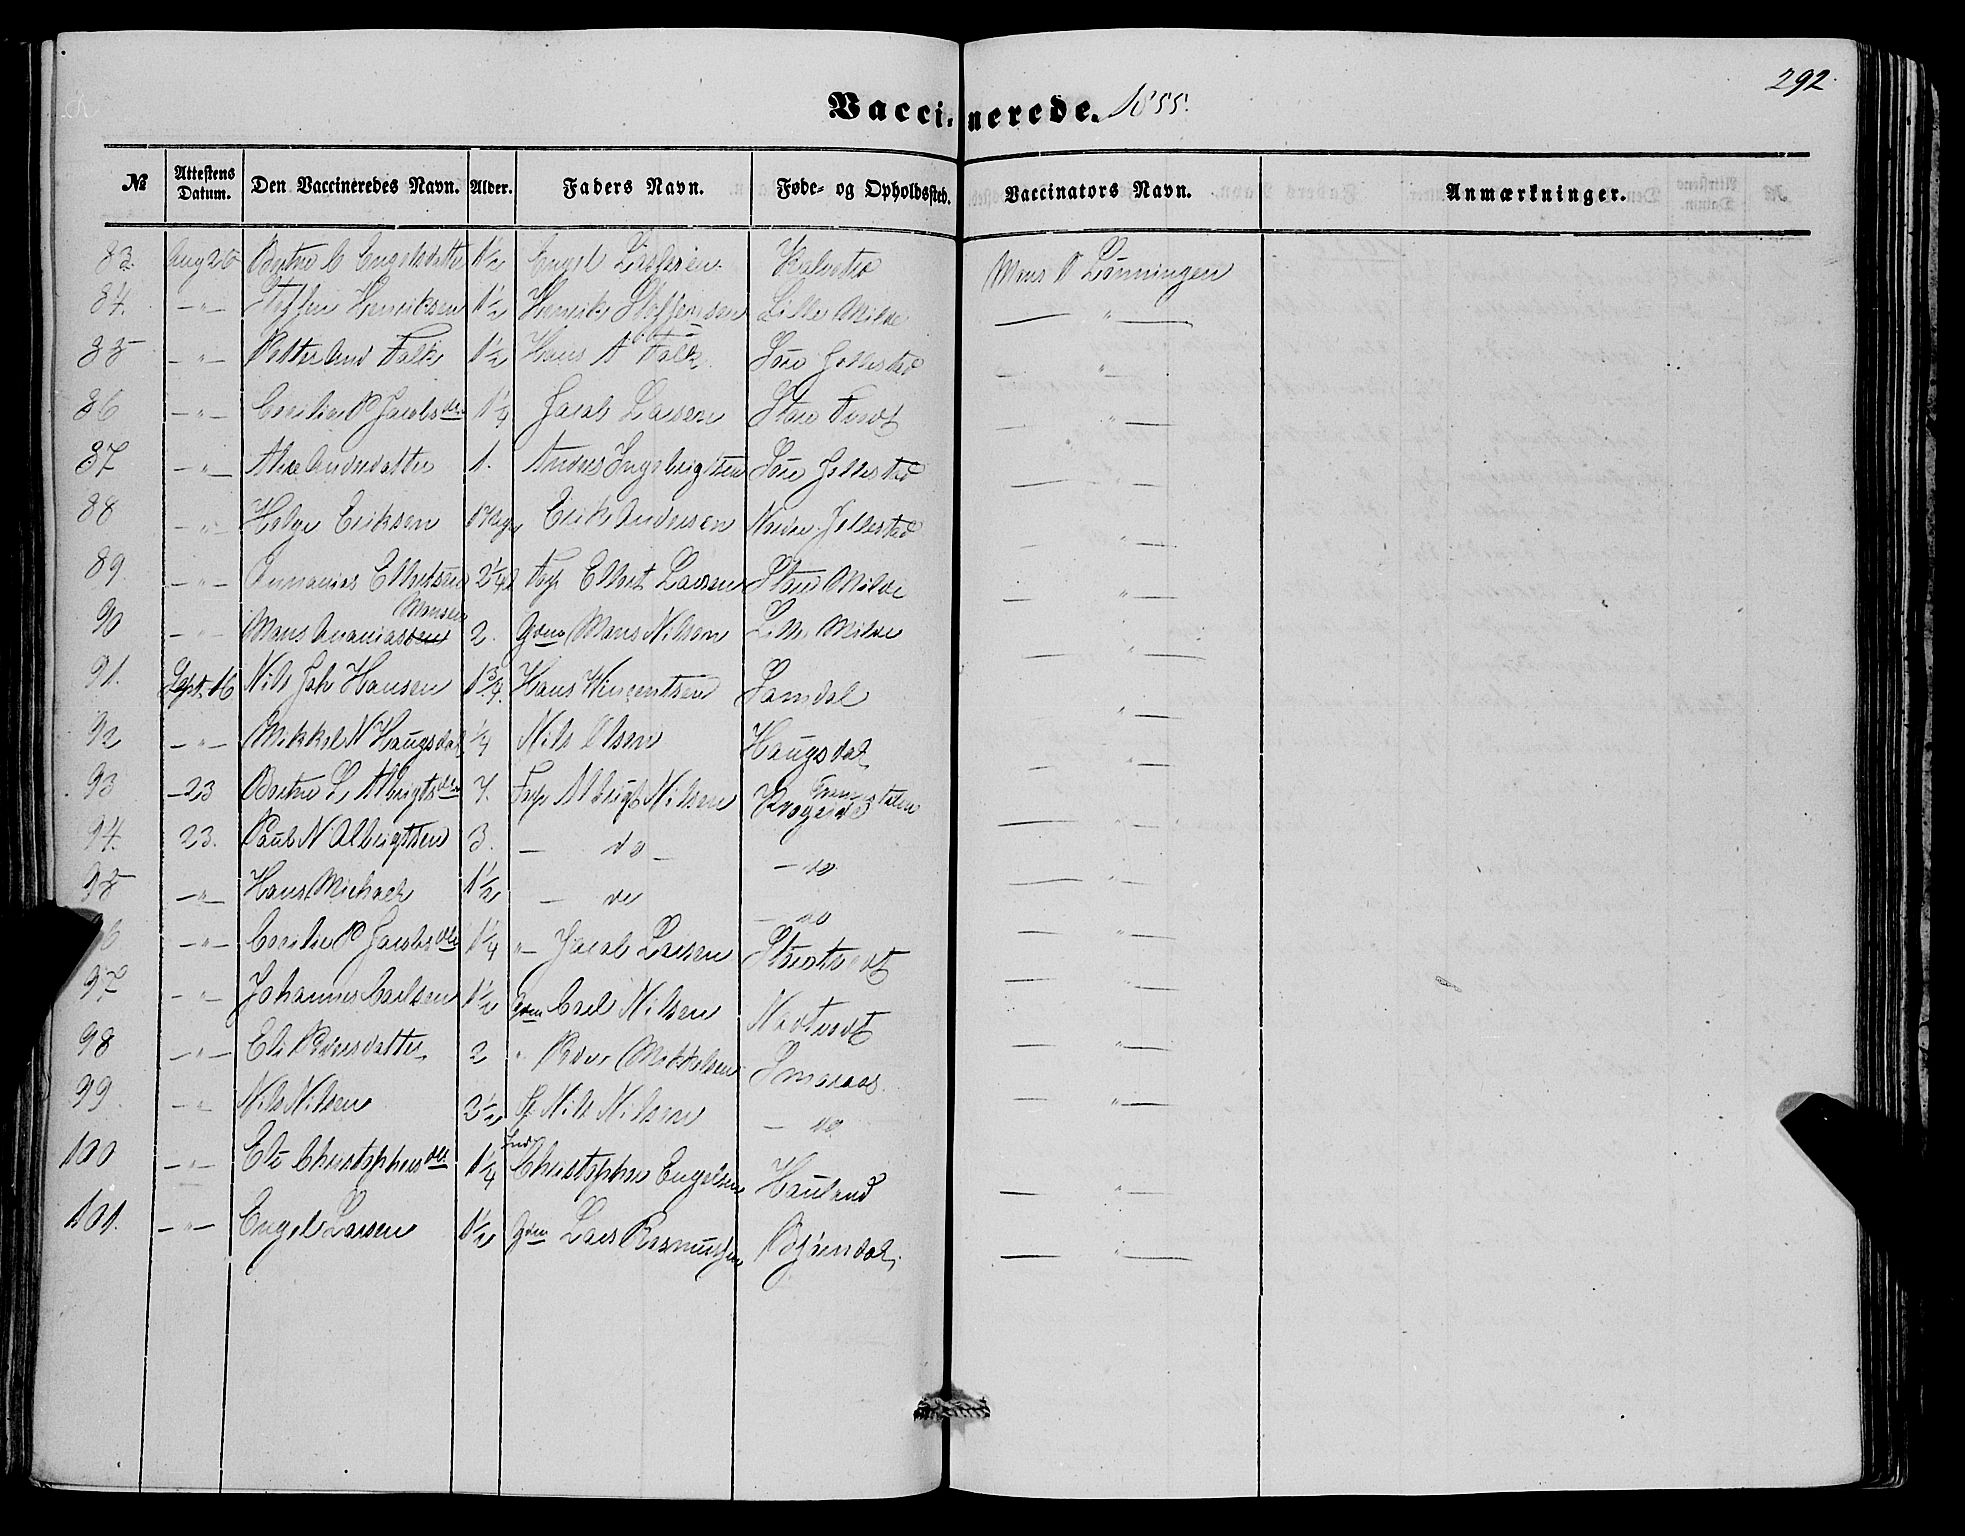 292.
Vaccinerede. 1855.
№ Attestens Datum. Den Vaccineredes Navn. Alder. Faders Navn. Føde- og Opholdssted. Vaccinators Navn. Anmærkninger.
83. Aug 26 Engelsdatter 1½ Engel Kalvetræ Mons Lønningen
84. — " — Steffen Henriksen 1½ Henrik Steffensen Lille Milde — " —
85 — " — Petter And Falk 1½ Hans A Falk Søre Jellestad — " —
86 — " — Cecilie P Jacobsdtr 1¼ Jacob Larsen Store Tvedt — " —
87 — " — Andersdatter 1. Anders Ingebrigtsen Søre Jellestad — " —
88 — " — Helge Eriksen Erik Andersen Nedre Jellestad — " —
89. — " — Annanias Ellertsen 2¼ Ellert Larsen Store Milde — " —
90 — " — Mons Ananiassen Monsen 2. Gdm Mons Nilsen Lille Milde — " —
91. Sept. 16 Nils Joh Hansen 1¾. Hans Vincentsen Samdal — " —
92 — " — Mikkel N Haugsdal ¼ Nils Olsen Haugsdal — " —
93 — 23 Albrigtsdtr 7. Albrigt Nilsen — " —
94. 23. Paul N Albrigtsen 3. — do — — do — " —
95 — " — Hans Michael 1½ — do — do — " —
96 — " — Cecilie P Jacobsdtr 1¼ " — Jacob Larsen Storetvedt — " —
97 — " — Johannes Carlsen 1½ Gdm Carl Nilsen Nedtvedt — " —
98 — " — Eli Pedersdatter 2 " Peder Mikkelsen Smøraas — " —
99. — " Nils Nilsen 2½ Nils Nilsen — do — " —
100 — " — Eli Christophersdtr 1¼ Ind Christopher Engelsen Hauland — " —
101. — " — Engel Larsen 1½ Gdm Lars Rasmussen Bjørndal. — " —